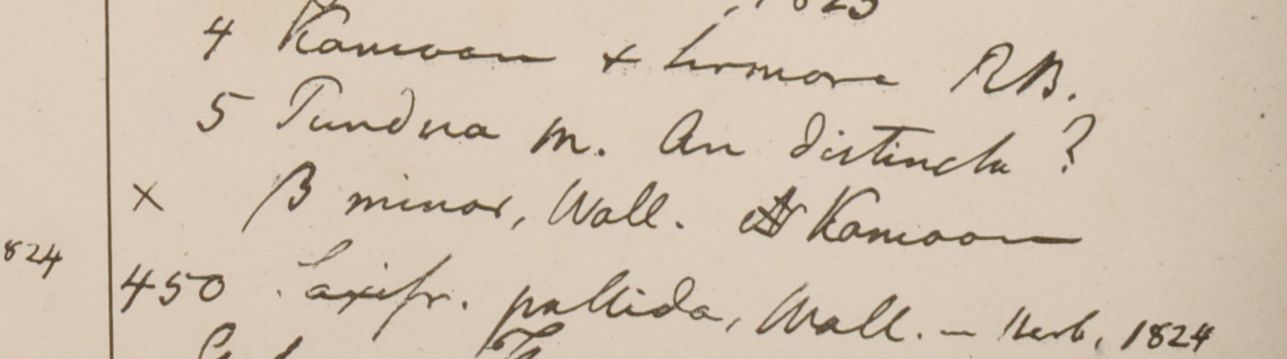 1823
4 Kamoon & Sirmore RB.
5 Tundua m. An distincta?
824
× β minor, Wall. Kamoon
450 Saxifr. pallida, Wall. – Herb. 1824